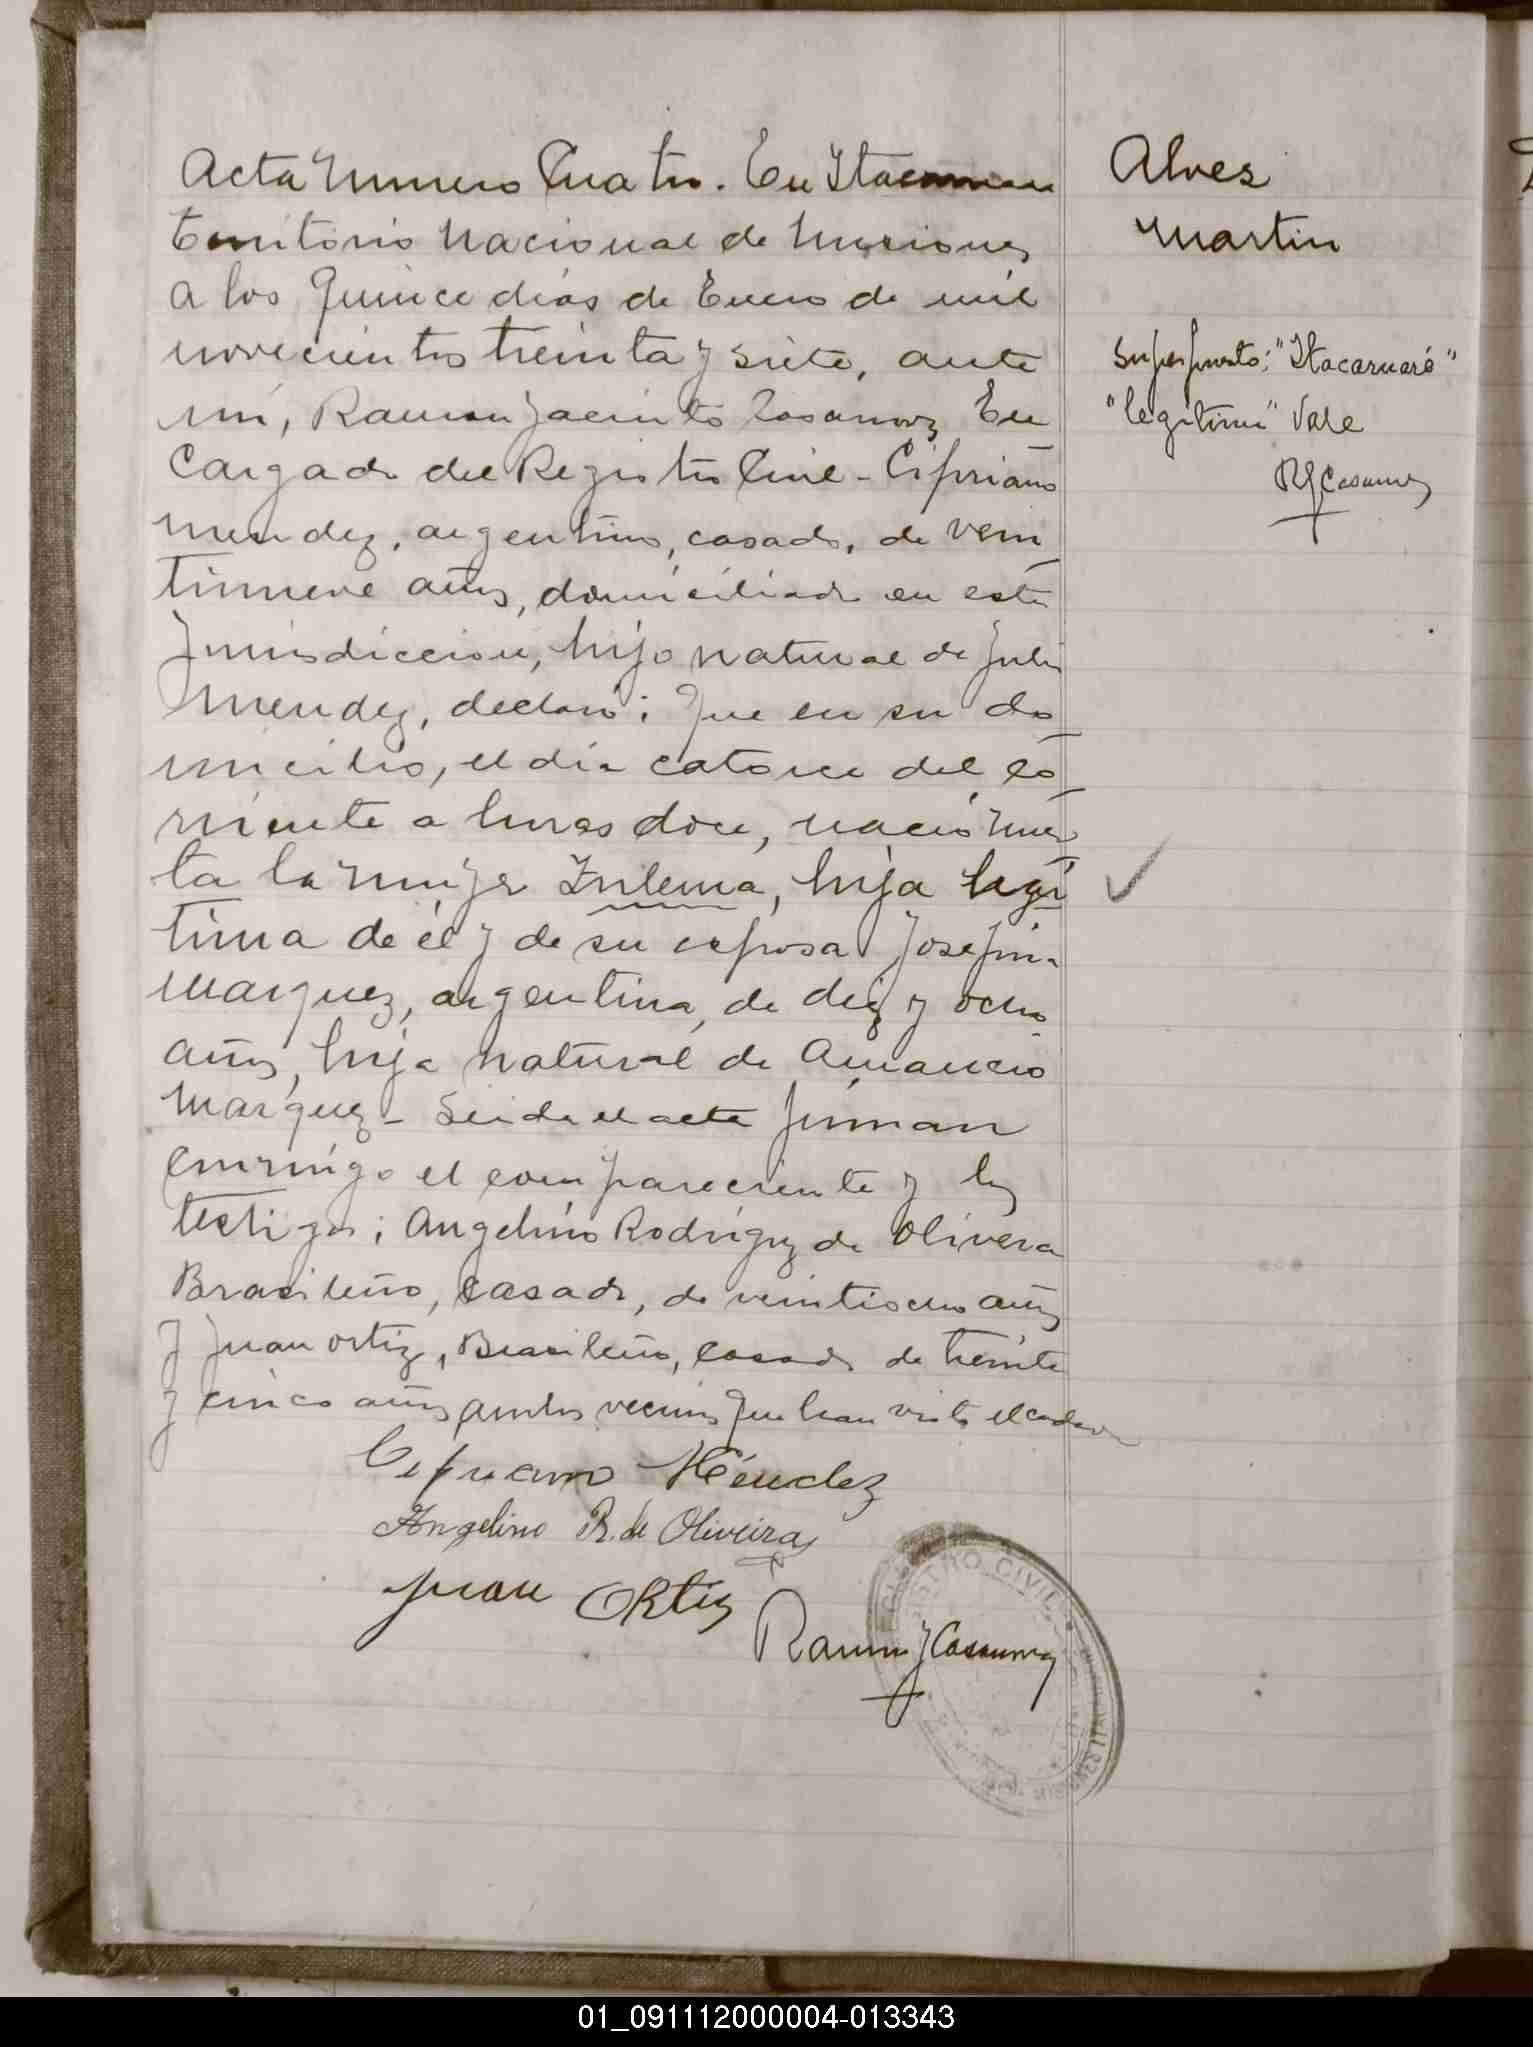 Acta Numero Cuatro. En Itacaruaré
Territorio Nacional de Misiones
a los Quince dias de Enero de mil
novecientos treinta y siete, ante
mi, Ramon Jacinto Casanova, En
cargado del Registro Civil - Cipriano
Mendez, argentino, casado, de vein
tinueve años, domiciliado en esta
Jurisdiccion, hijo natural de Julia
Mendez, declaró: Que en su do
micilio, el dia catorce del co
rriente a horas doce, nació muer
ta la mujer Zulema, hija legi
tima de él y de su esposa Josefina
Marquez, argentina, de diez y ocho
años, hija natural de Amancio
Marquez - Leida el acta firman
conmigo el compareciente y los
testigos; Angelino Rodriguez de Olivera
Brasileño, casado, de veintiocho años
y Juan Ortiz, Brasileño, casado de treinta
y cinco años ambos vecinos que han visto el cadaver
Cipriano Méndez
Angelino R. de Oliveira
Juan Ortiz
Ramon J Casanova
REGISTRO CIVIL
MISIONES
Alves
Martin
Superpuesto: "Itacaruaré"
"legitima" Vale
RJ Casanova
01_091112000004-013343